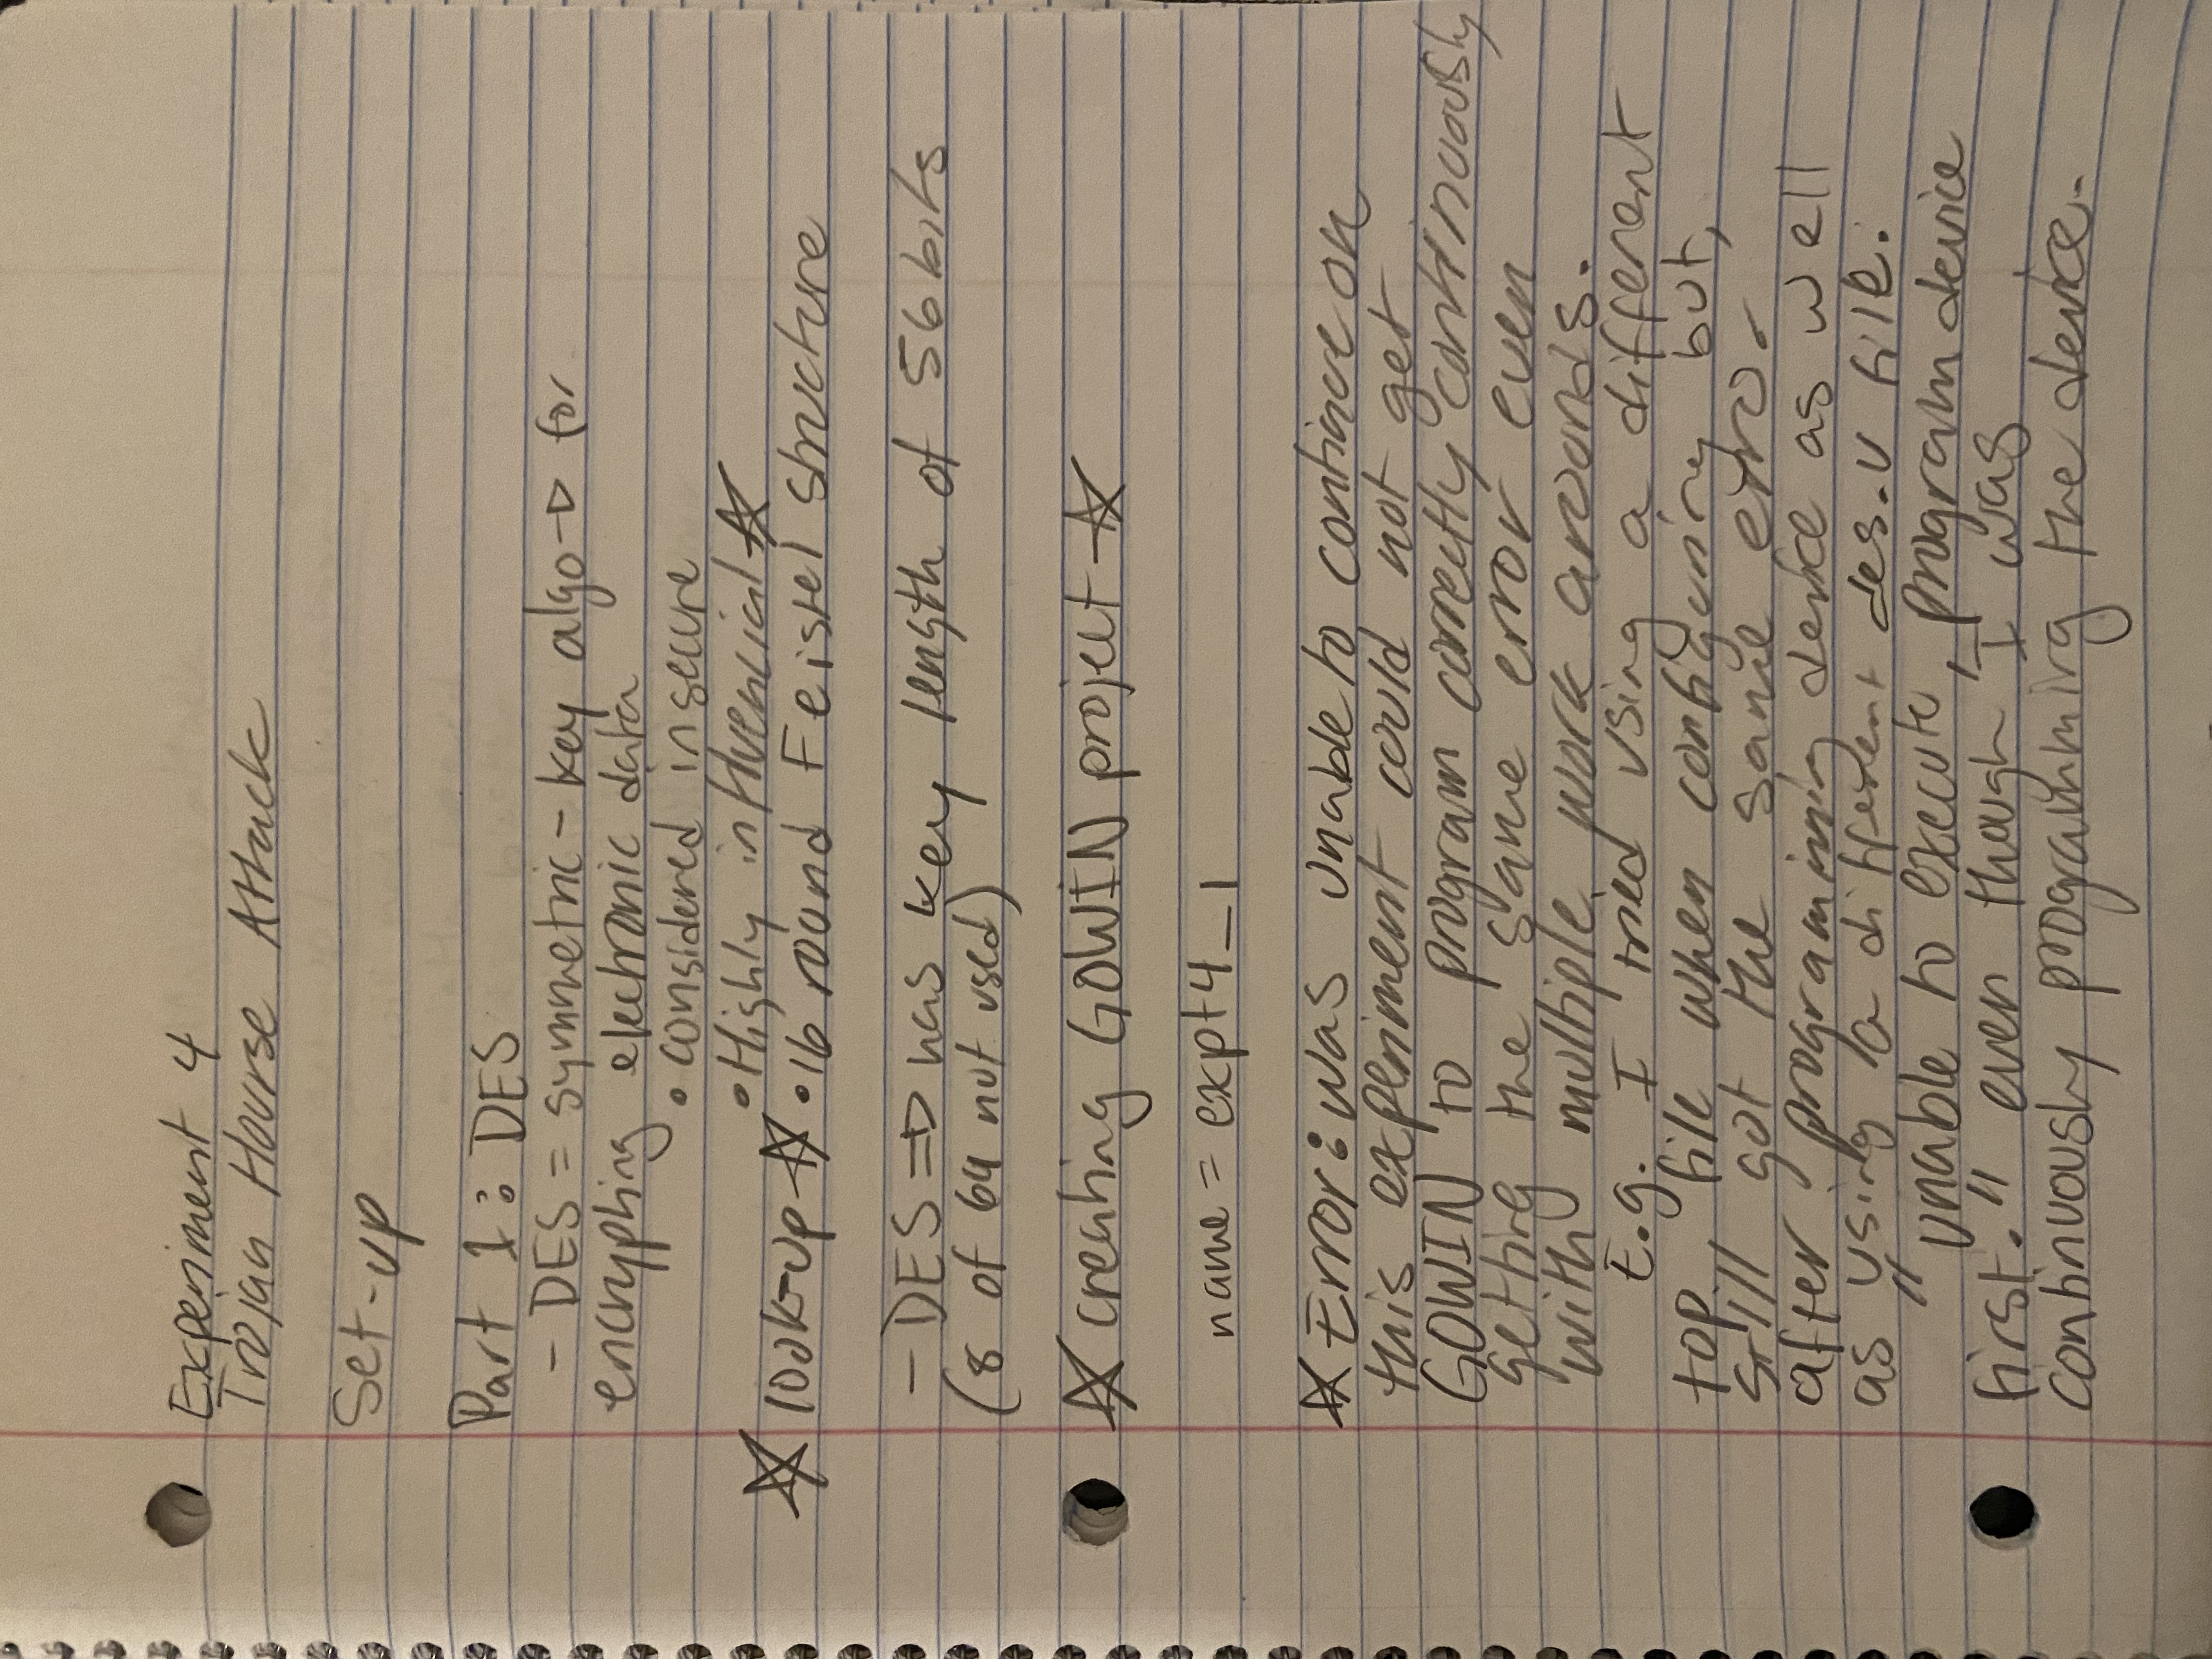 Experiment 4
Trojan Hourse Attack
Set-up
Part 1: DES
- DES = symmetric-key algo → for
encrypting electronic data
• considered insecure
• Highly influencial ☆
☆ look-up ☆ • 16 round Feistel structure
- DES ⇒ has key length of 56 bits
(8 of 64 not used)
☆ creating GOWIN project ☆
name = expt4_1
☆ Error: was unable to continue on
this experiment could not get
GOWIN to program correctly continuously
getting the same error even
with multiple work arounds.
E.g. I tried using a different
top file when configuring but,
still got the same error
after programming device as well
as using a different des.v file.
"unable to execute, program device
first." even though I was
continuously programming the device.